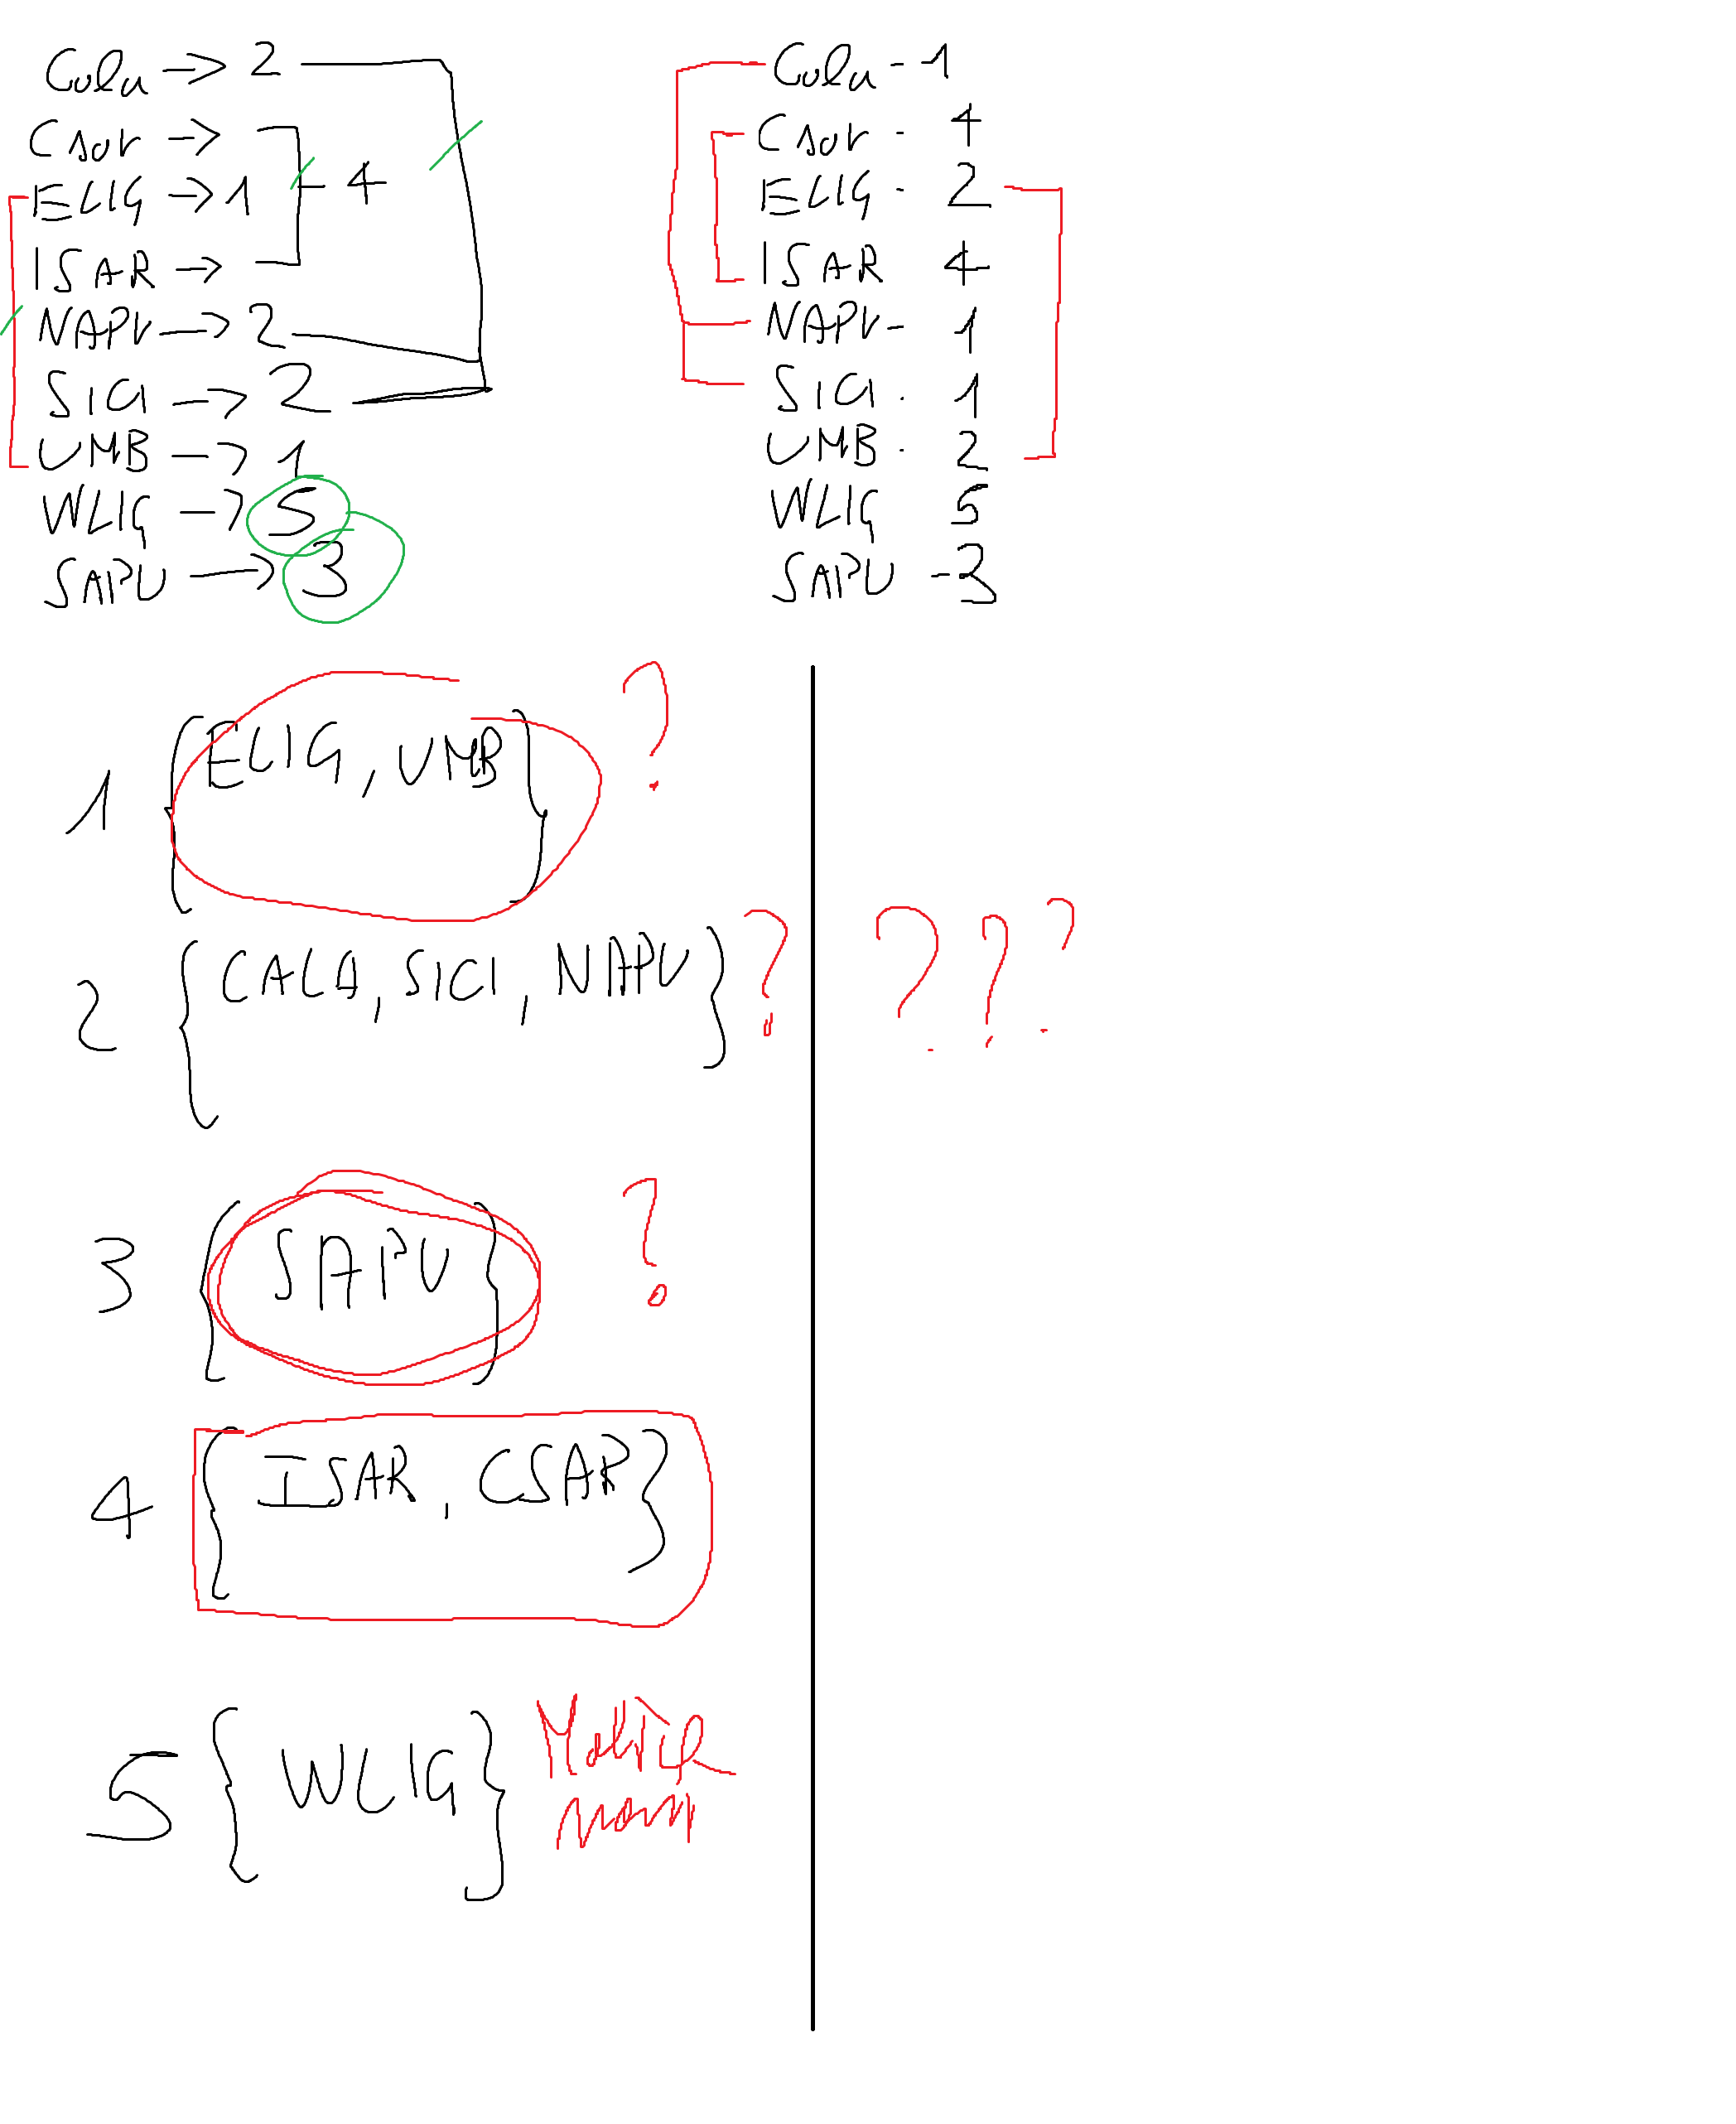 Cala -> 2
Csar ->
ELIG -> 1
4
ISAR ->
NAPU -> 2
SICI -> 2
UMB -> 1
WLIG -> 5
SAPU -> 3
Cala - 1
Csar - 4
ELIG - 2
ISAR 4
NAPU - 1
SICI . 1
UMB . 2
WLIG 5
SAPU - 3
1 {ELIG, UMB} ?
2 {CALA, SICI, NAPU} ? ? ? ?
3 {SAPU} ?
4 {ISAR, CSAR}
5 {WLIG}